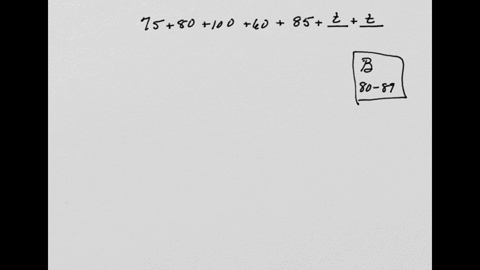 75 + 80 + 100 + 60 + 85 + t + t
B
80-89